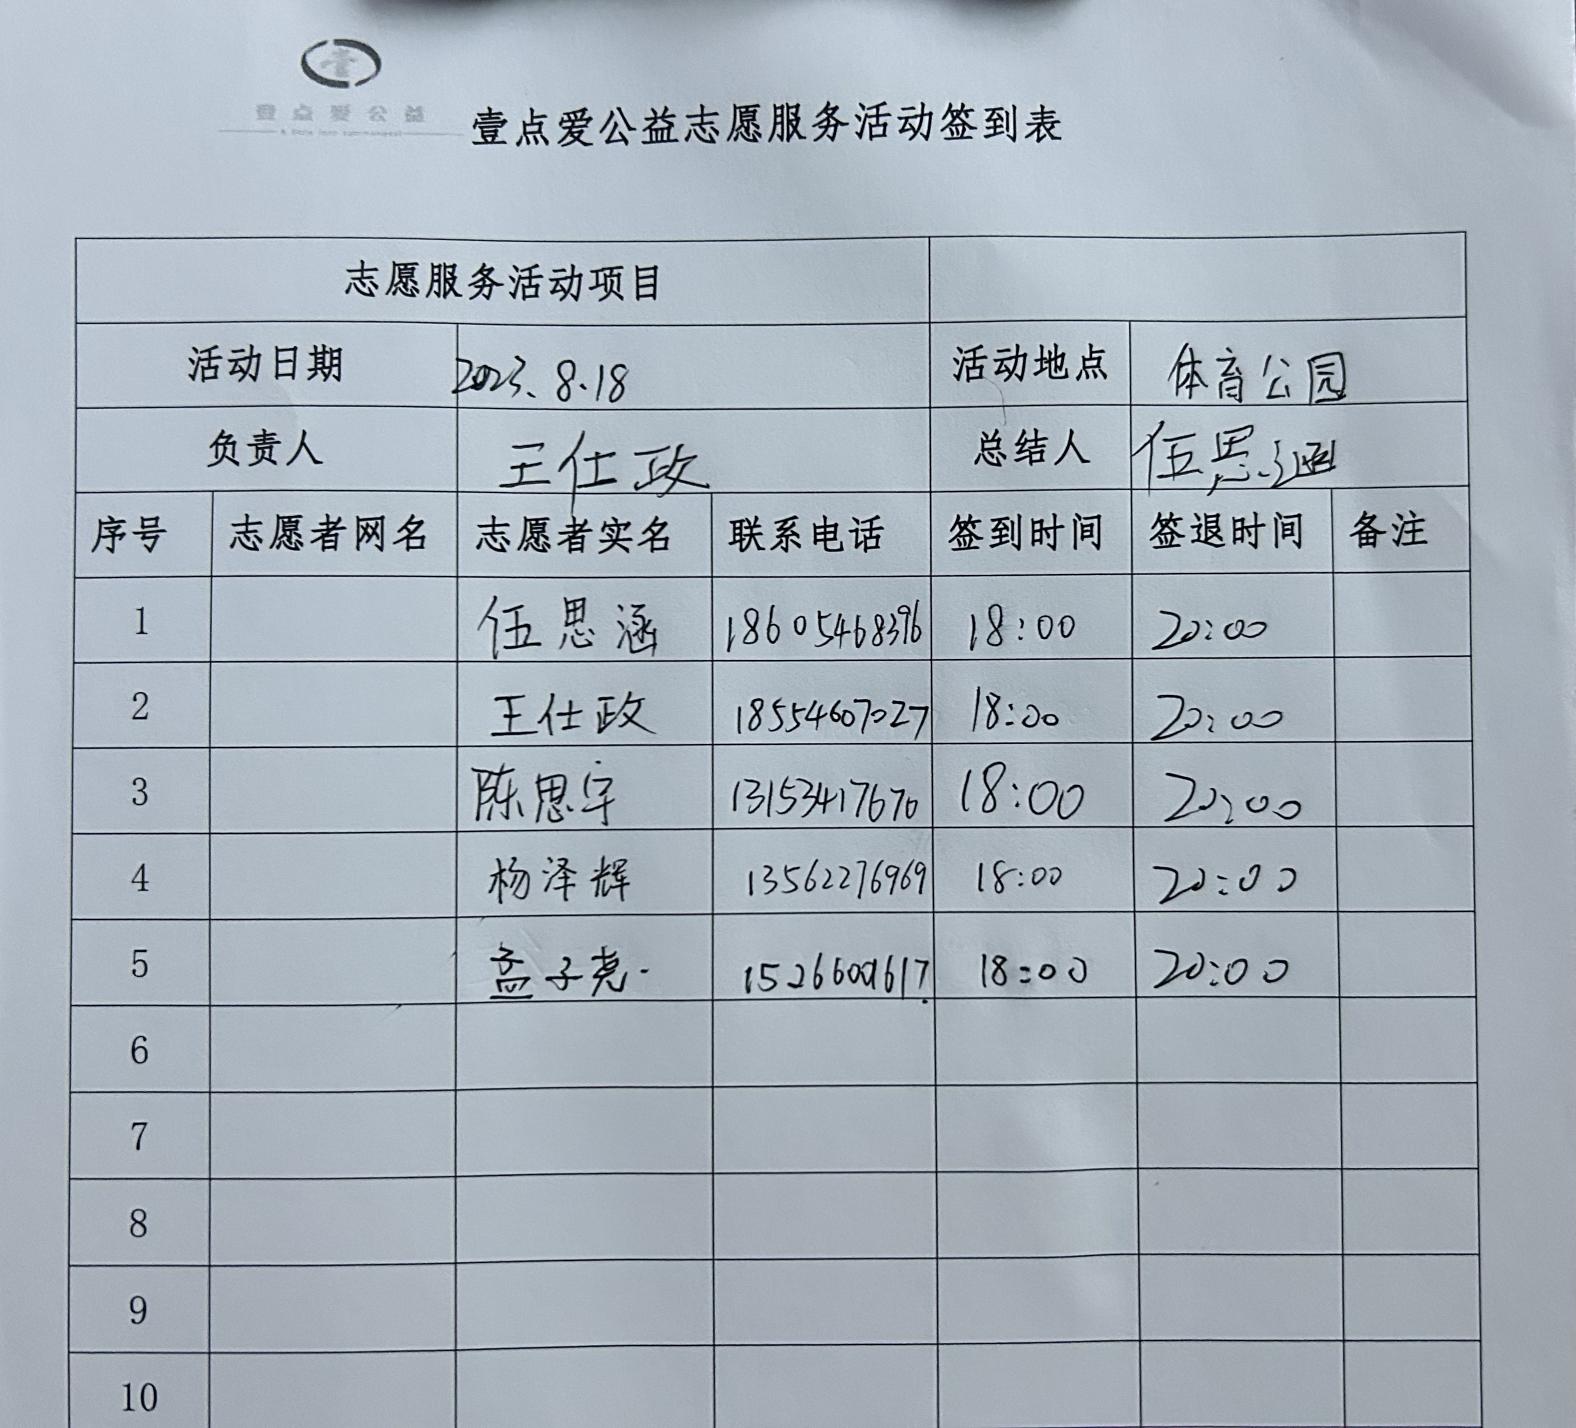 壹点爱公益
壹点爱公益志愿服务活动签到表
志愿服务活动项目
活动日期 2023.8.18 活动地点 体育公园
负责人 王仕政 总结人 伍思涵
序号 志愿者网名 志愿者实名 联系电话 签到时间 签退时间 备注
1 伍思涵 18605468396 18:00 20:00
2 王仕政 18554607027 18:00 20:00
3 陈思宇 13153417670 18:00 20:00
4 杨泽辉 13562276969 18:00 20:00
5 孟子尧 18:00 20:00
6
7
8
9
10